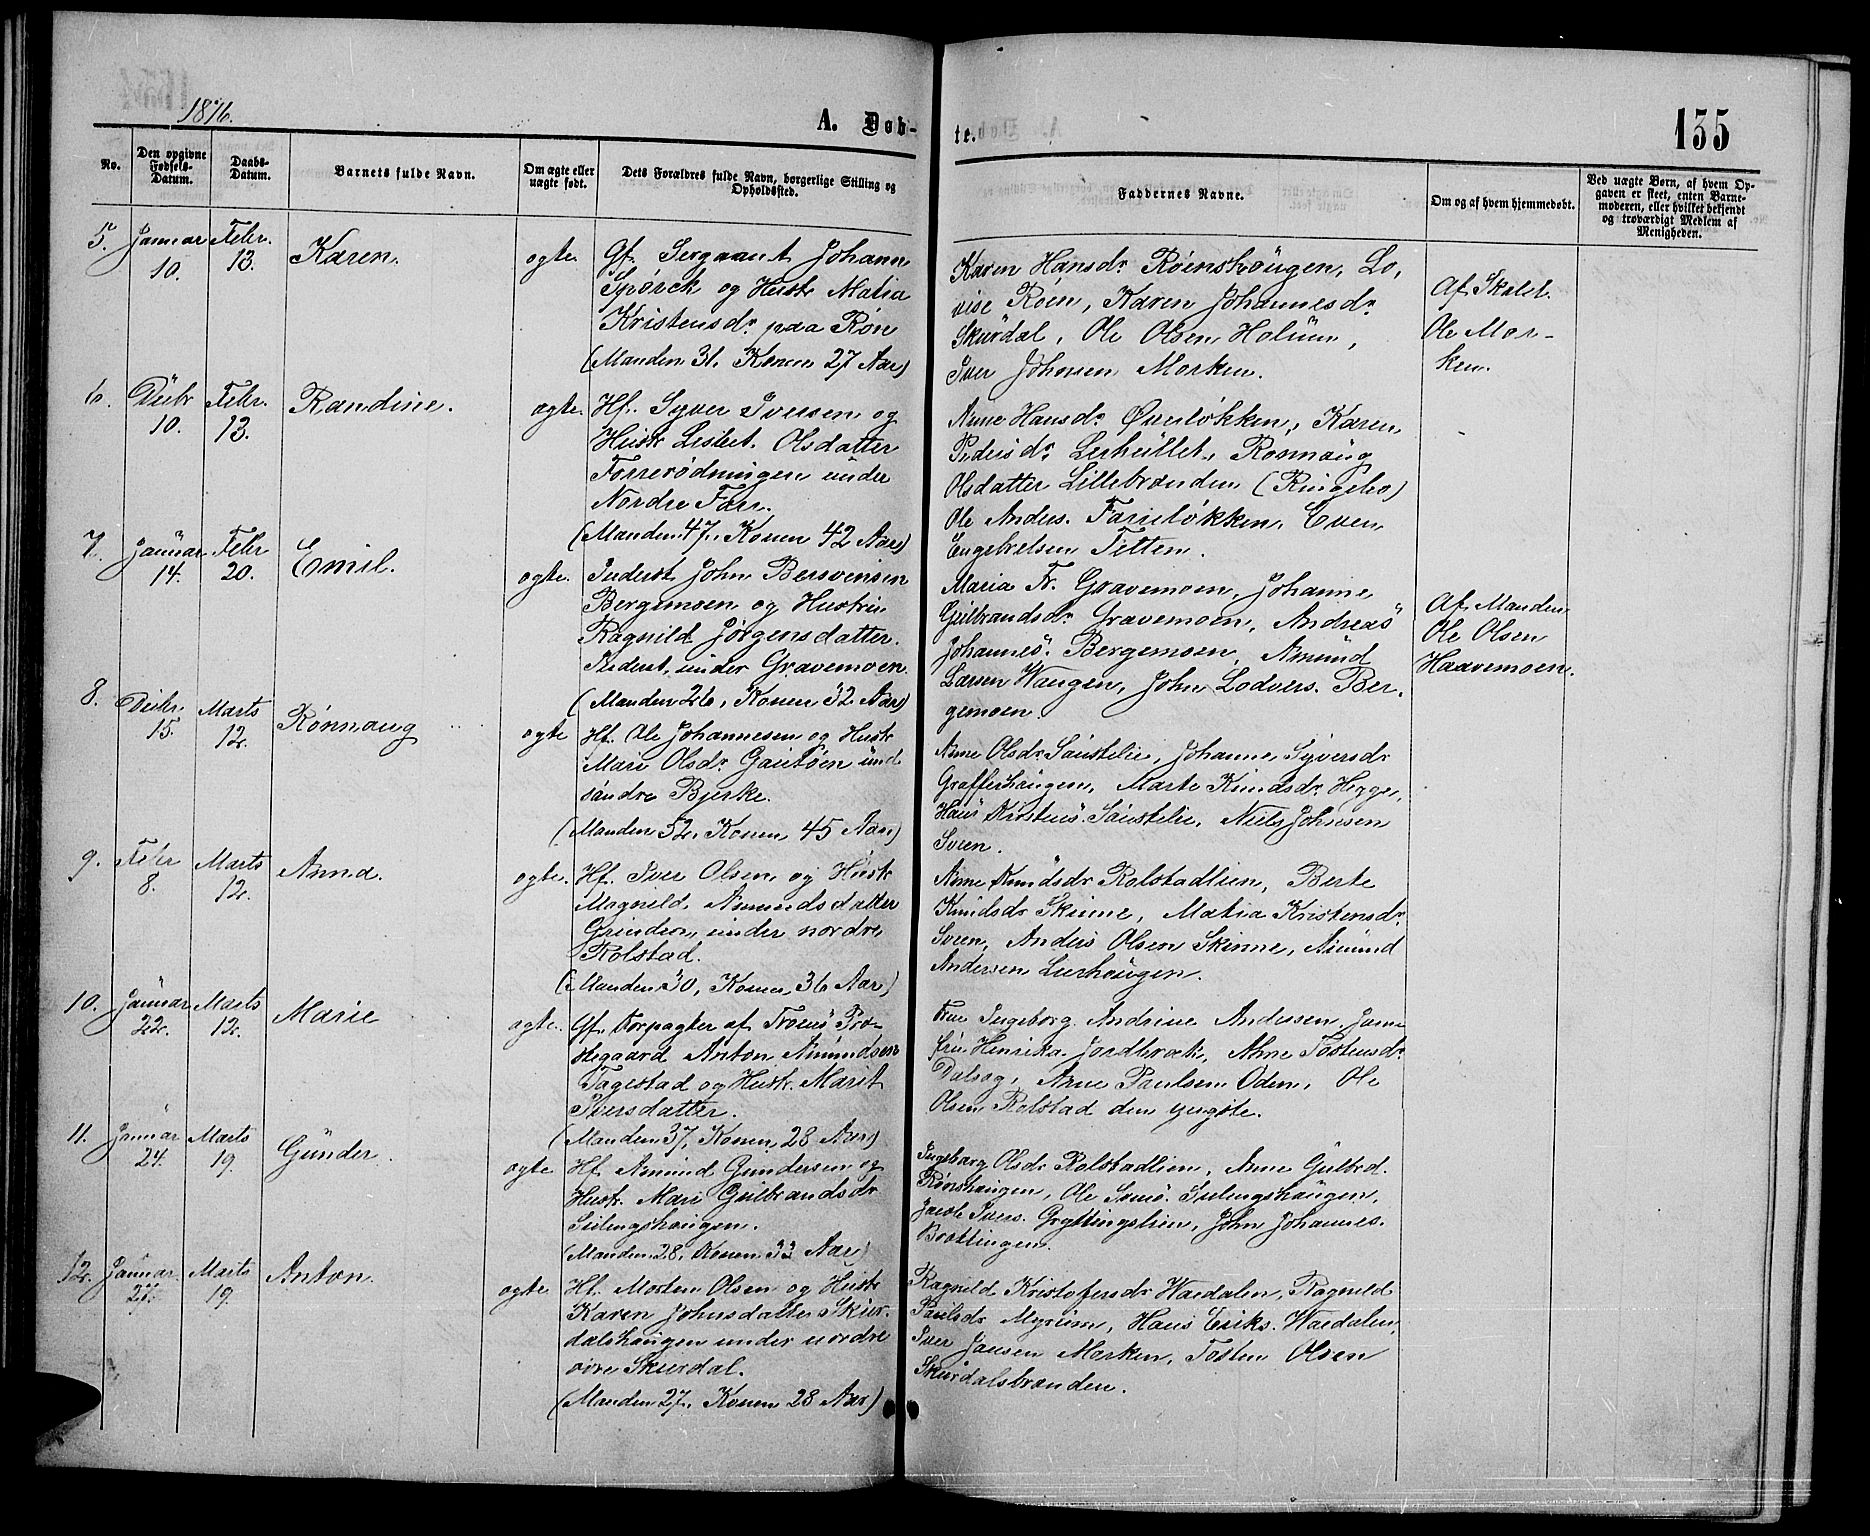 1876.
A. Døb-
te.
155
No.
Den opgivne
Fødsels-
Datum.
Daabs-
Datum.
Barnets fulde Navn.
Om ægte eller
uægte født.
Dets Forældres fulde Navn, borgerlige Stilling og
Opholdssted.
Faddernes Navne.
Om og af hvem hjemmedøbt.
Ved uægte Børn, af hvem Op-
gaven er skeet, enten Barne-
moderen, eller hvilket bekjendt
og troværdigt Medlem af
Menigheden.
5. Januar 10. Febr. 13. Karen. ægte.
Gf. Sergeant Johann
Spørck og Hustr Matia
Kristensdr. paa Røn
(Manden 31. Konen 27 Aar)
Karen Hansdr. Røenshaugen, Lo-
vise Røen, Karen Johannesdr.
Skurdal, Ole Olsen Holum,
Iver Johnsen Morken.
Af Skolel.
Ole Mor-
ken.
6. Debr 10. Febr. 13. Randine. ægte.
Hf. Syver Iversen og
Hustr Lisbet Olsdatter
Forrerødningen under
Nordre Farr.
(Manden 47, Konen 42 Aar)
Anne Hansdr. Øvreløkken, Karen
Pedersdr. Lerhullet, Rønnaug
Olsdatter Lillebrænden (Ringebo)
Ole Anders. Farreløkken, Even
Engebretsen Tetten.
7. Januar 14. Febr 20. Emil. ægte.
Inderst John Bersvensen
Bergemoen og Hustru
Ragnild Jørgensdatter.
Inderst under Gravemoen.
(Manden 26, Konen 32 Aar)
Maria Fr. Gravemoen, Johanne
Gulbrandsdr. Gravemoen, Andreas
Johannes. Bergemoen, Amund
Larsen Waugen, John Lodvers. Ber-
gemoen.
Af Manden
Ole Olsen
Haavemoen.
8. Debr. 15. Marts 12. Rønnaug ægte
Hf. Ole Johannesen og Hustr
Mari Olsdr. Gautøen und
søndre Bjerke.
(Manden 52, Konen 45 Aar)
Anne Olsdr. Saustelie, Johanne Syversdr
Grafferhaugen, Marte Knudsdr. Hegge,
Hans Kristens. Saustelie, Niels Johnsen
Sveen.
9. Febr 8. Marts 12. Anna. ægte.
Hf. Iver Olsen og Hustr
Magnild Amundsdatter
Grinden under nordre
Rolstad.
(Manden 30, Konen 36 Aar)
Anne Knudsdr Rolstadlien, Berte
Knudsdr Skinne, Matia Kristensdr.
Sveen, Anders Olsen Skinne, Amund
Andersen Lurhaugen.
10. Januar 22. Marts 12. Marie ægte.
Gf. Forpagter af Froens Præ-
stegaard Anton Amundsen
Fagestad og Hustr. Marit
Iversdatter.
(Manden 37, Konen 28 Aar)
Frue Ingeborg Andrine Andersen, Jom-
fru Henrika Jordbræk, Anne Tostensdr
Dalseg, Arne Paulsen Oden, Ole
Olsen Rolstad den yngste.
11. Januar 24. Marts 19. Gunder. ægte
Hf. Amund Gundersen og
Hustr. Mari Gulbrandsdr
Sulengshaugen.
(Manden 28, Konen 33 Aar)
Ingeborg Olsdr Rolstadlien, Anne Gulbrd.
Rønshaugen, Ole Svens. Sulengshaugen,
Jacob Ivers. Gryttingslien, John Johannes.
Brottingen.
12. Januar 27. Marts 19. Anton. ægte
Hf. Morten Olsen og Hustr
Karen Johnsdatter Skur-
dalshaugen under nordre
øvre Skurdal.
(Manden 27, Konen 28 Aar)
Ragnild Kristofersdr Waedalen, Ragnild
Paulsdr Myrum, Hans Eriks. Waedalen,
Iver Jansen Morken, Tosten Olsen
Skurdalsbrænden.